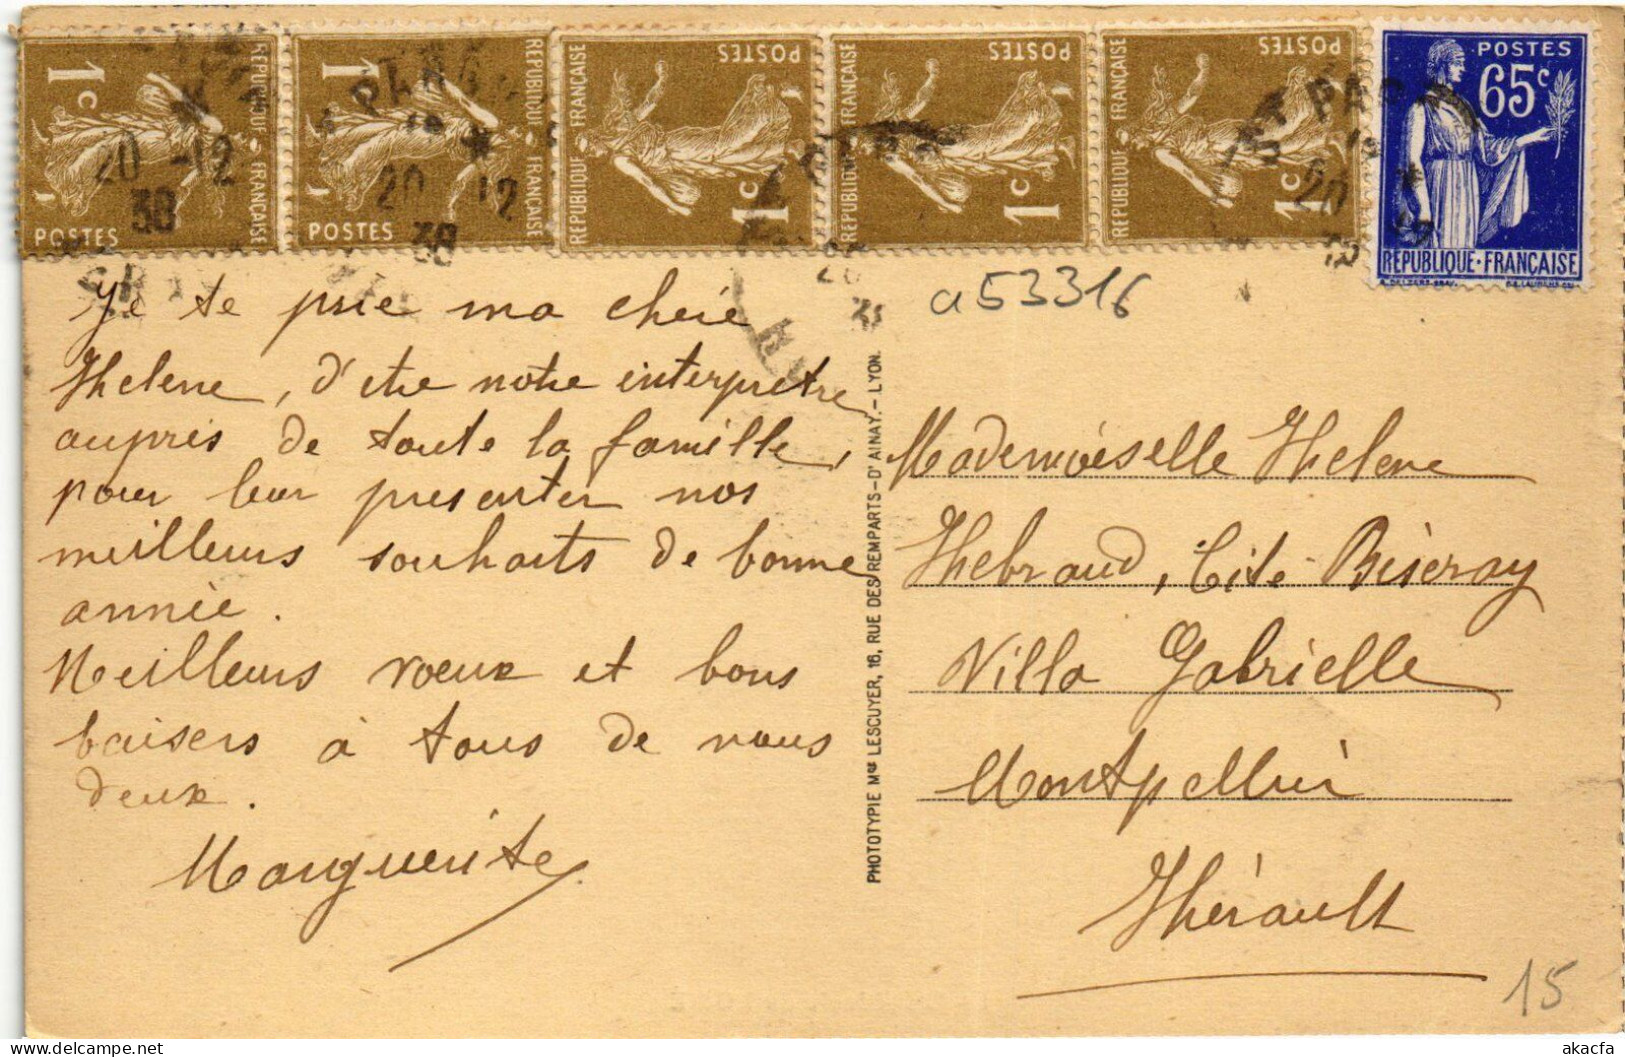 1c
RÉPUBLIQUE FRANÇAISE
POSTES
20 -12
38
1c
RÉPUBLIQUE FRANÇAISE
POSTES
20 12
38
RÉPUBLIQUE FRANÇAISE
POSTES
1c
RÉPUBLIQUE FRANÇAISE
POSTES
1c
RÉPUBLIQUE FRANÇAISE
POSTES
1c
20
POSTES
65c
RÉPUBLIQUE·FRANÇAISE
a53316
Je te prie ma chère
Hélène, d'être notre interprètre
auprès de toute la famille,
pour leur presenter nos
meilleurs souhaits de bonne
année.
Meilleurs voeux et bons
baisers à tous de nous
deux.
Marguerite
PHOTOTYPIE Mce LESCUYER, 16, RUE DES REMPARTS-D'AINAY.-LYON.
Mademoiselle Hélène
Hebraud, Cité Biseray
Villa Gabrielle
Montpellier
Hérault
15
akacfa